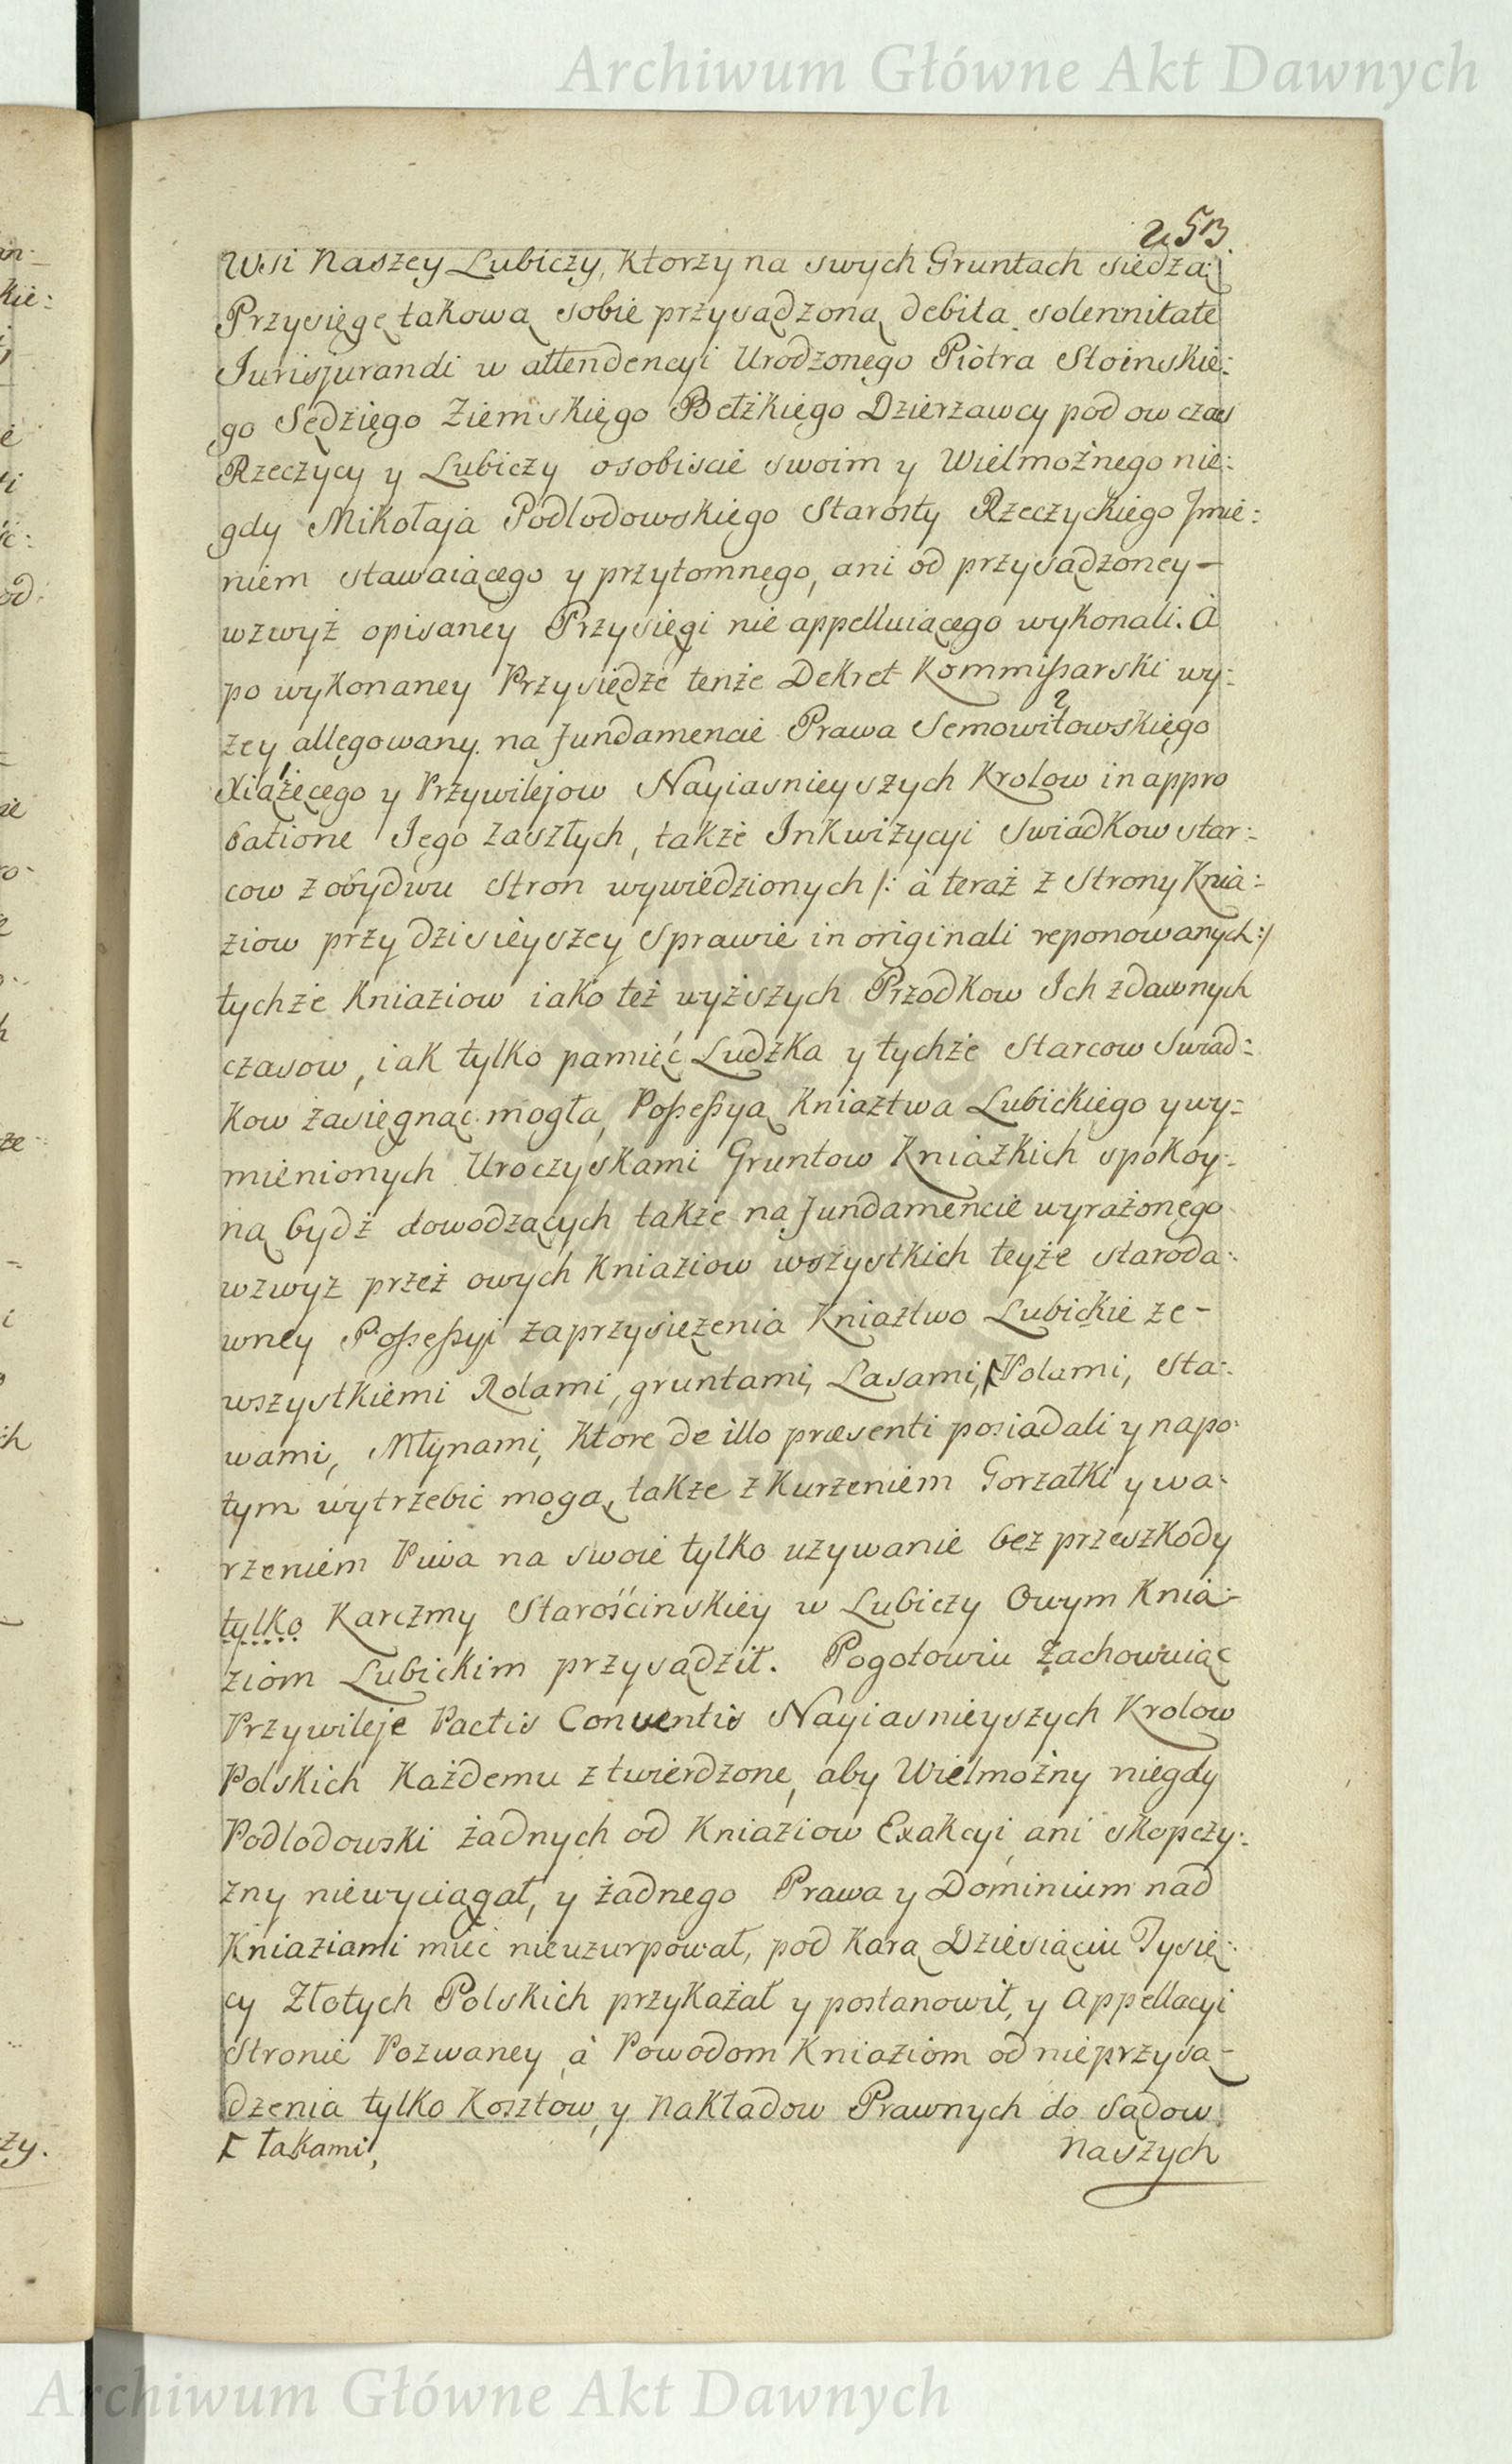 Archiwum Główne Akt Dawnych
253.
Wsi Naszey Lubiczy, Ktorzy na swych Gruntach siedzą:
Przysięgę takową sobie przysądzoną debita solennitate
Jurisjurandi w attendencyi Urodzonego Piotra Stoinskie:
go Sędziego Ziemskiego Bełżkiego Dzierżawcy pod ow czas
Rzeczycy y Lubiczy osobiscie swoim y Wielmożnego nie:
gdy Mikołaja Podlodowskiego Starosty Rzeczyckiego Jmie:
niem stawaiącego y przytomnego, ani od przysądzoney –
wzwyż opisaney Przysięgi nie appelluiącego wykonali. à
po wykonaney Przysiędze tenże Dekret Kommissarski wy:
żey allegowany na fundamencie Prawa Semowitowskiego
Xiążęcego y Przywilejow Nayiasnieyszych Krolow in appro
batione Jego zaszłych, także Inkwizycyi Swiadkow star:
cow z obydwu Stron wywiedzionych /: à teraz z Strony Knia:
ziow przy dzisieyszey Sprawie in originali reponowanych :/
tychże Kniaziow iako też wyższych Przodkow Ich zdawnych
czasow, iak tylko pamięć Ludzka y tychże Starcow Swiad:
Kow zasięgnąć mogła, Possessyą Kniaztwa Lubickiego y wy:
mienionych Uroczyskami Gruntow Kniazkich spokoy:
ną bydź dowodzących także na fundamencie wyrażonego
wzwyz przez owych Kniaziow wszystkich teyże staroda:
wney Possessyi zaprzysiezenia Kniaztwo Lubickie ze –
wszystkiemi Rolami, gruntami, Lasami, Polami, Sta:
wami, Młynami, Ktore de illo præsenti posiadali y napo:
tym wytrzebic mogą, także z Kurzeniem Gorzałki y wa:
rzeniem Piwa na swoie tylko uzywanie bez przeszkody
tylko Karczmy Starościnskiey w Lubiczy Owym Knia:
ziom Lubickim przysądził. Pogotowiu zachowuiąc
Przywileje Pactis Conventis Nayiasnieyszych Krolow
Polskich Każdemu ztwierdzone, aby Wielmożny niegdy
Podlodowski żadnych od Kniaziow Exakcyi ani skopczy:
zny niewyciągał, y żadnego Prawa y Dominium nad
Kniaziami mieć nieuzurpował, pod Karą Dziesiąciu Tysię:
cy Złotych Polskich przykazał y postanowił, y Appellacyi
Stronie Pozwaney, à Powodom Kniaziom od nieprzysą –
dzenia tylko Kosztow, y Nakładow Prawnych do Sądow
Ϝ łąkami,
Naszych
Archiwum Główne Akt Dawnych